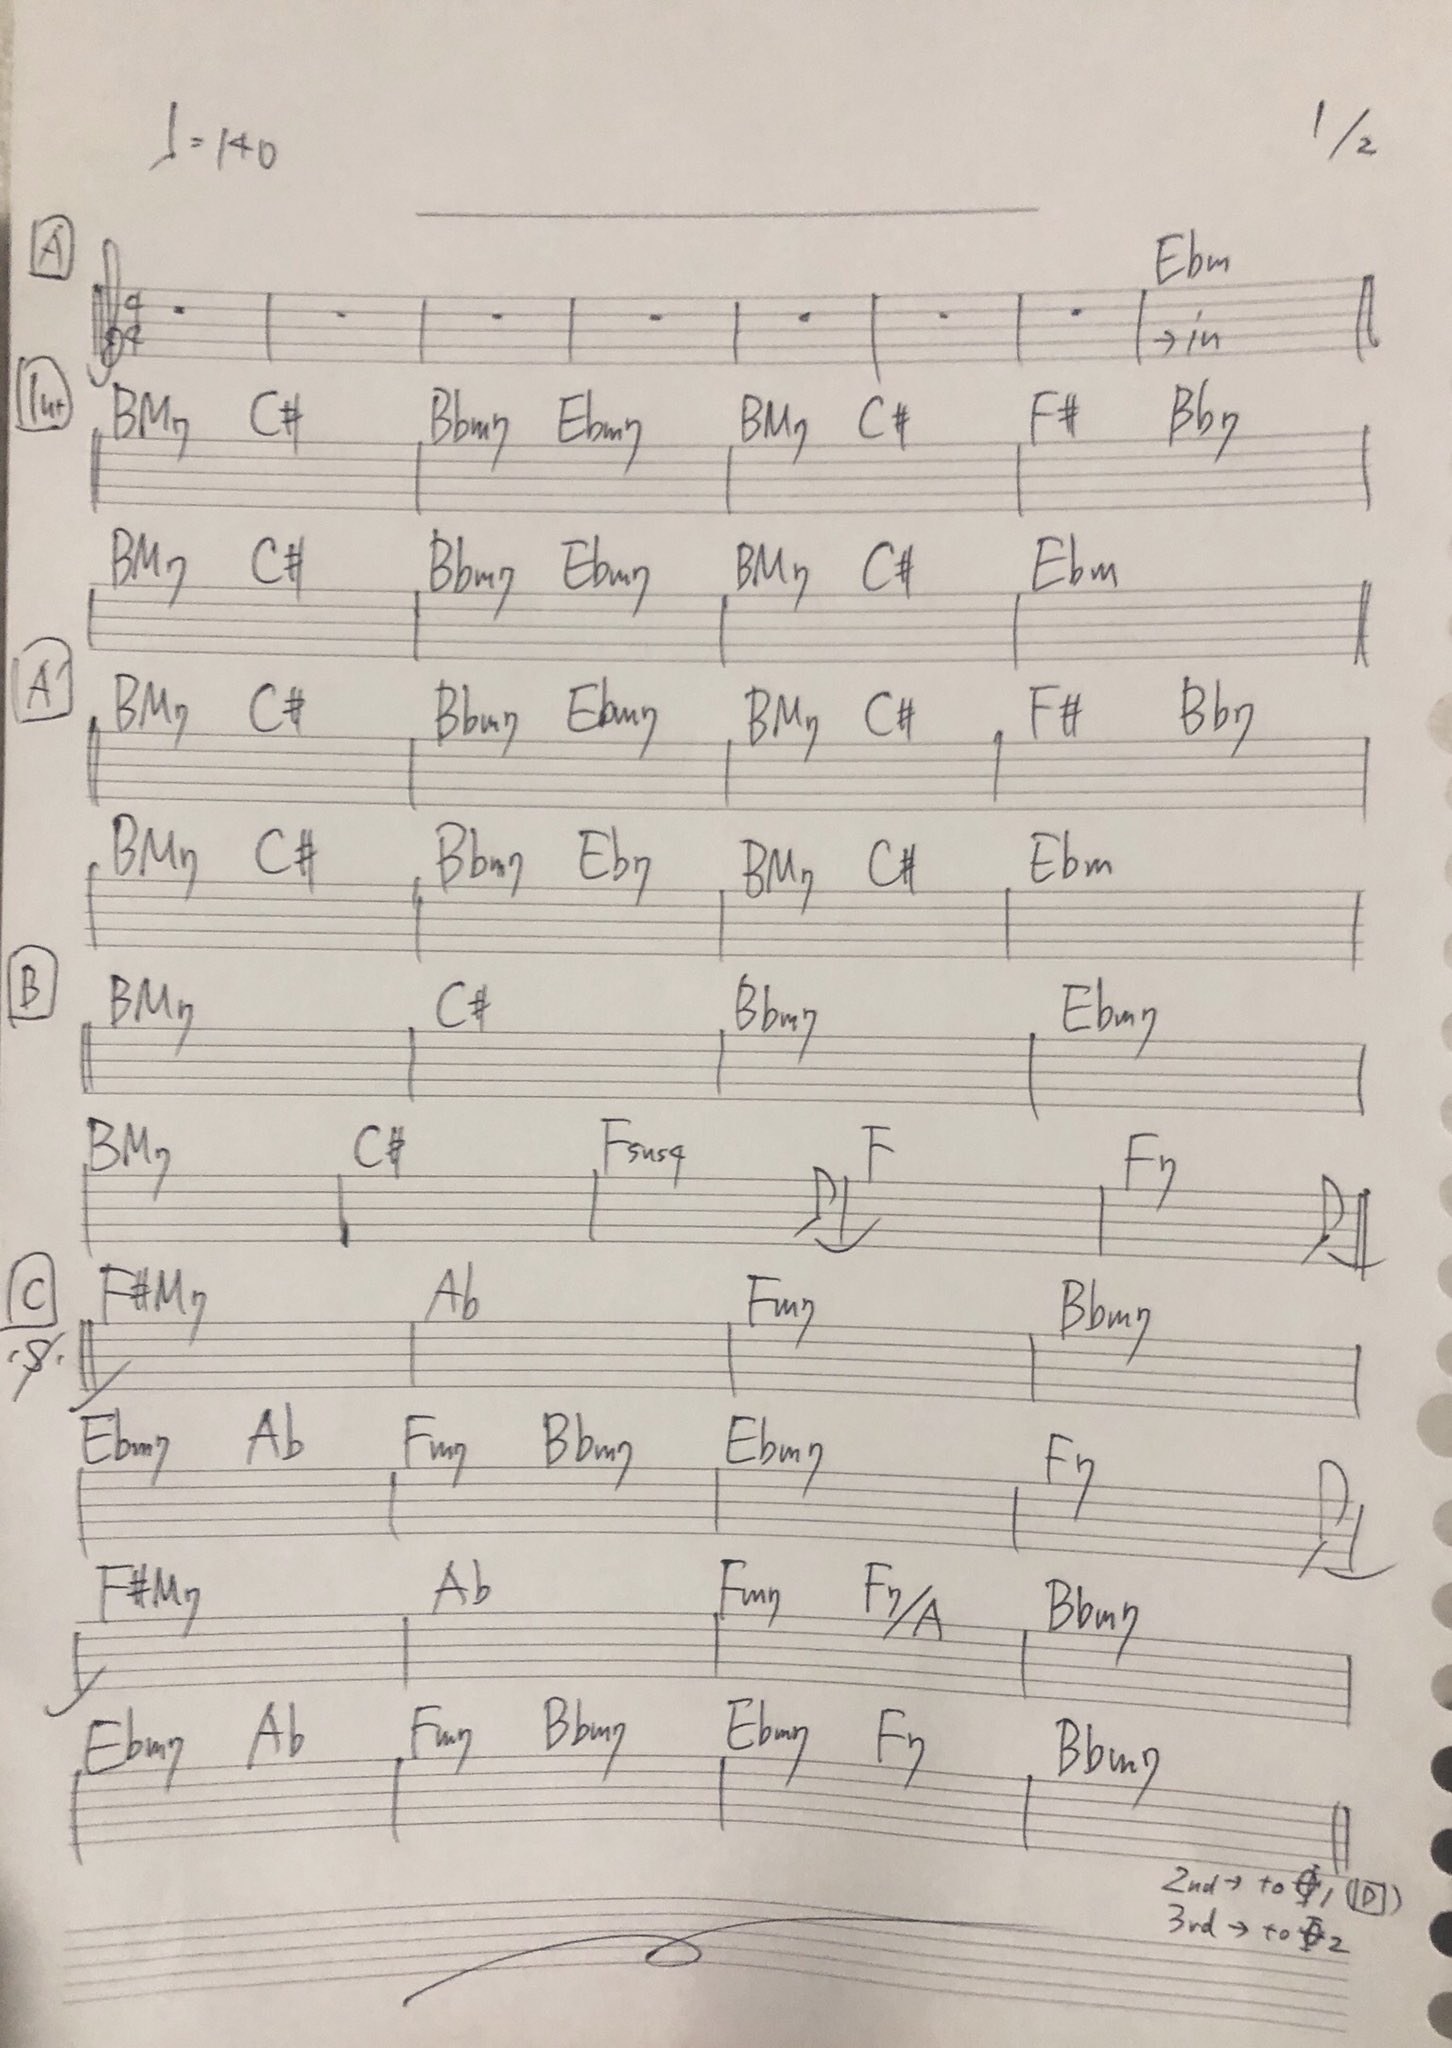 ♩=140 1/2
A Ebm
4/4 →in
Int BM7 C# Bbm7 Ebm7 BM7 C# F# Bb7
BM7 C# Bbm7 Ebm7 BM7 C# Ebm
A' BM7 C# Bbm7 Ebm7 BM7 C# F# Bb7
BM7 C# Bbm7 Eb7 BM7 C# Ebm
B BM7 C# Bbm7 Ebm7
BM7 C# Fsus4 F F7
C F#M7 Ab Fm7 Bbm7
Ebm7 Ab Fm7 Bbm7 Ebm7 F7
F#M7 Ab Fm7 F7/A Bbm7
Ebm7 Ab Fm7 Bbm7 Ebm7 F7 Bbm7
2nd→ to 𝄌1 (D)
3rd→ to 𝄌2